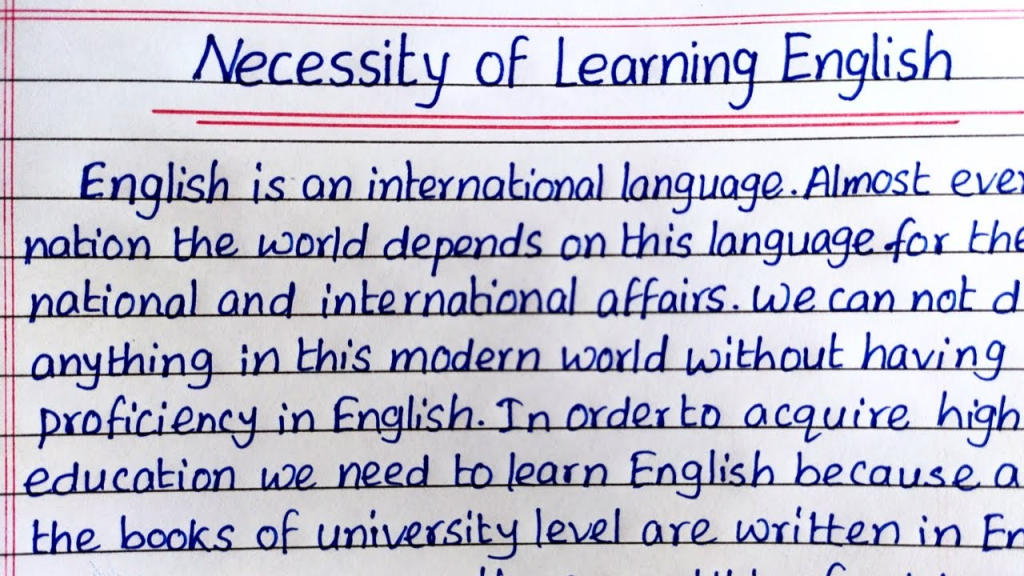 Necessity of Learning English
English is an international language. Almost ever
nation the world depends on this language for the
national and international affairs. We can not d
anything in this modern world without having
proficiency in English. In order to acquire high
education we need to learn English because a
the books of university level are written in En